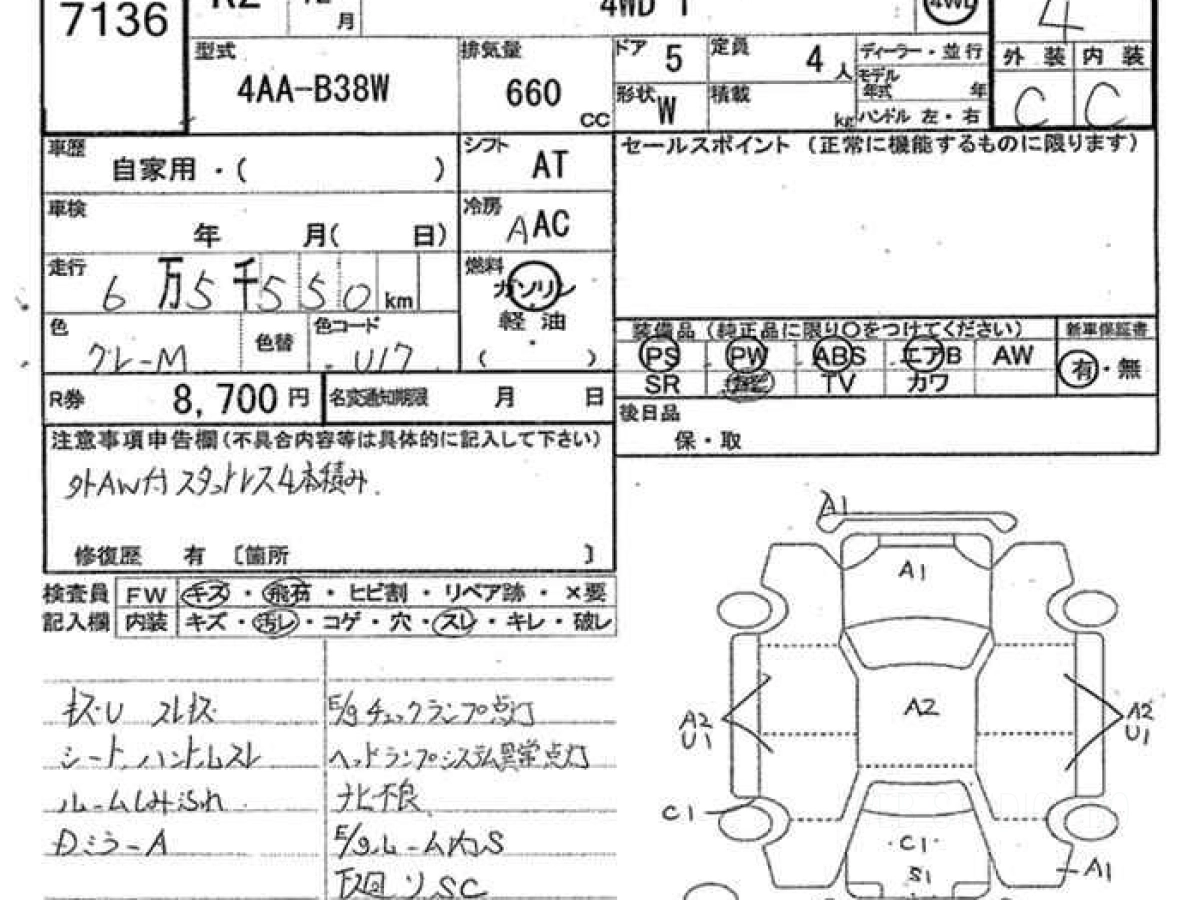 7136
R2
12
月
4WD
4WD
4
型式
4AA-B38W
排気量
660
CC
ドア 5
定員 4人
ディーラー・並行
モデル年式 年
形状 W
積載 kg
ハンドル 左・右
外装 内装
C C
車歴
自家用・( )
シフト AT
セールスポイント (正常に機能するものに限ります)
車検
年 月( 日)
冷房
A AC
走行
6万5千550km
燃料
ガソリン
軽油
( )
色
グレーM
色替
色コード
U17
装備品(純正品に限り○をつけてください)
新車保証書
PS PW ABS エアB AW
SR ナビ TV カワ
有・無
R券 8,700円
名変通知期限 月 日
後日品
保・取
注意事項申告欄(不具合内容等は具体的に記入して下さい)
外AW付 スタットレス4本積み.
修復歴 有 〔箇所 〕
検査員
記入欄
FW キズ・飛石・ヒビ割・リペア跡・×要
内装 キズ・汚レ・コゲ・穴・スレ・キレ・破レ
キズ・U スレキズ
シート、ハンドルスレ
ルームしみ汚れ
Dミラー A
E/gチェックランプ点灯
ヘッドランプシステム異常点灯
ナビ不良
E/gルーム内S
下回り、SC
A1
A1
A2
A2
U1
A2
U1
C1
C1
S1
A1